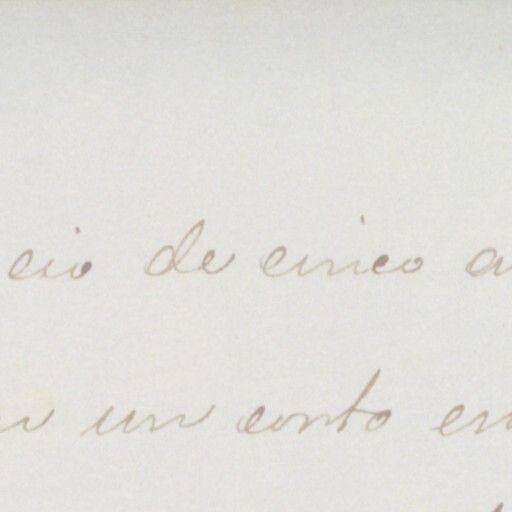 cio de cinco a
un conto en